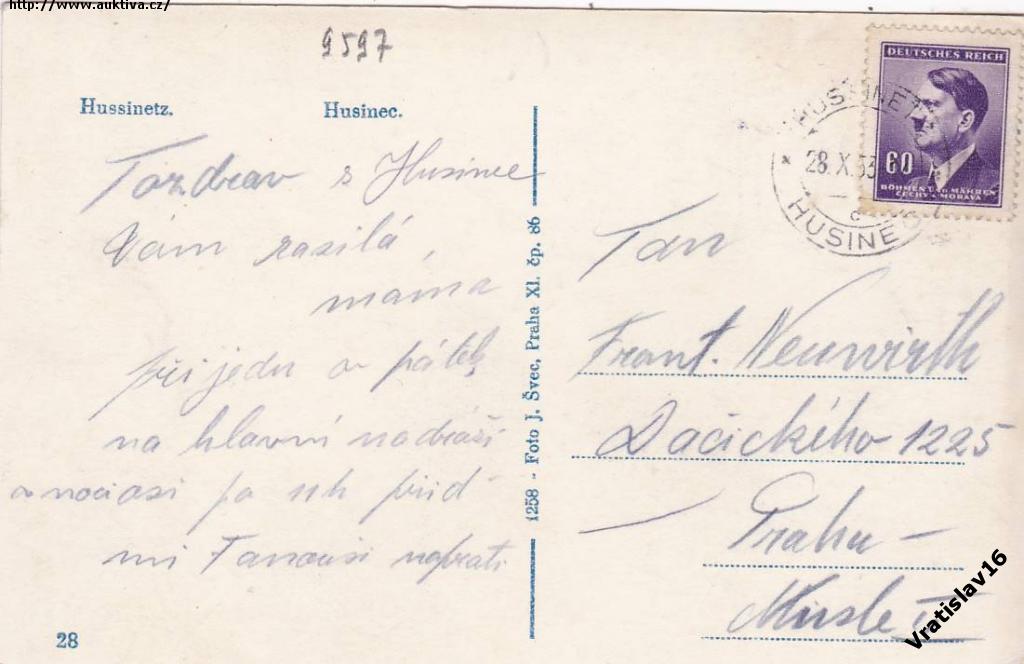 http://www.auktiva.cz/
9597
Hussinetz. Husinec.
DEUTSCHES REICH
60
BÖHMEN UND MÄHREN
ČECHY A MORAVA
HUSSINETZ
28.X.
HUSINEC
Pozdrav s Husince
Vám zasílá
máma
přijedu v pátek
na hlavní nádraží
v noci asi
mi naproti
28
1258 - Foto J. Švec, Praha XI. čp. 86
Pan
Frant. Neuwirth
Dačického 1225
Praha -
Nusle
Vratislav16